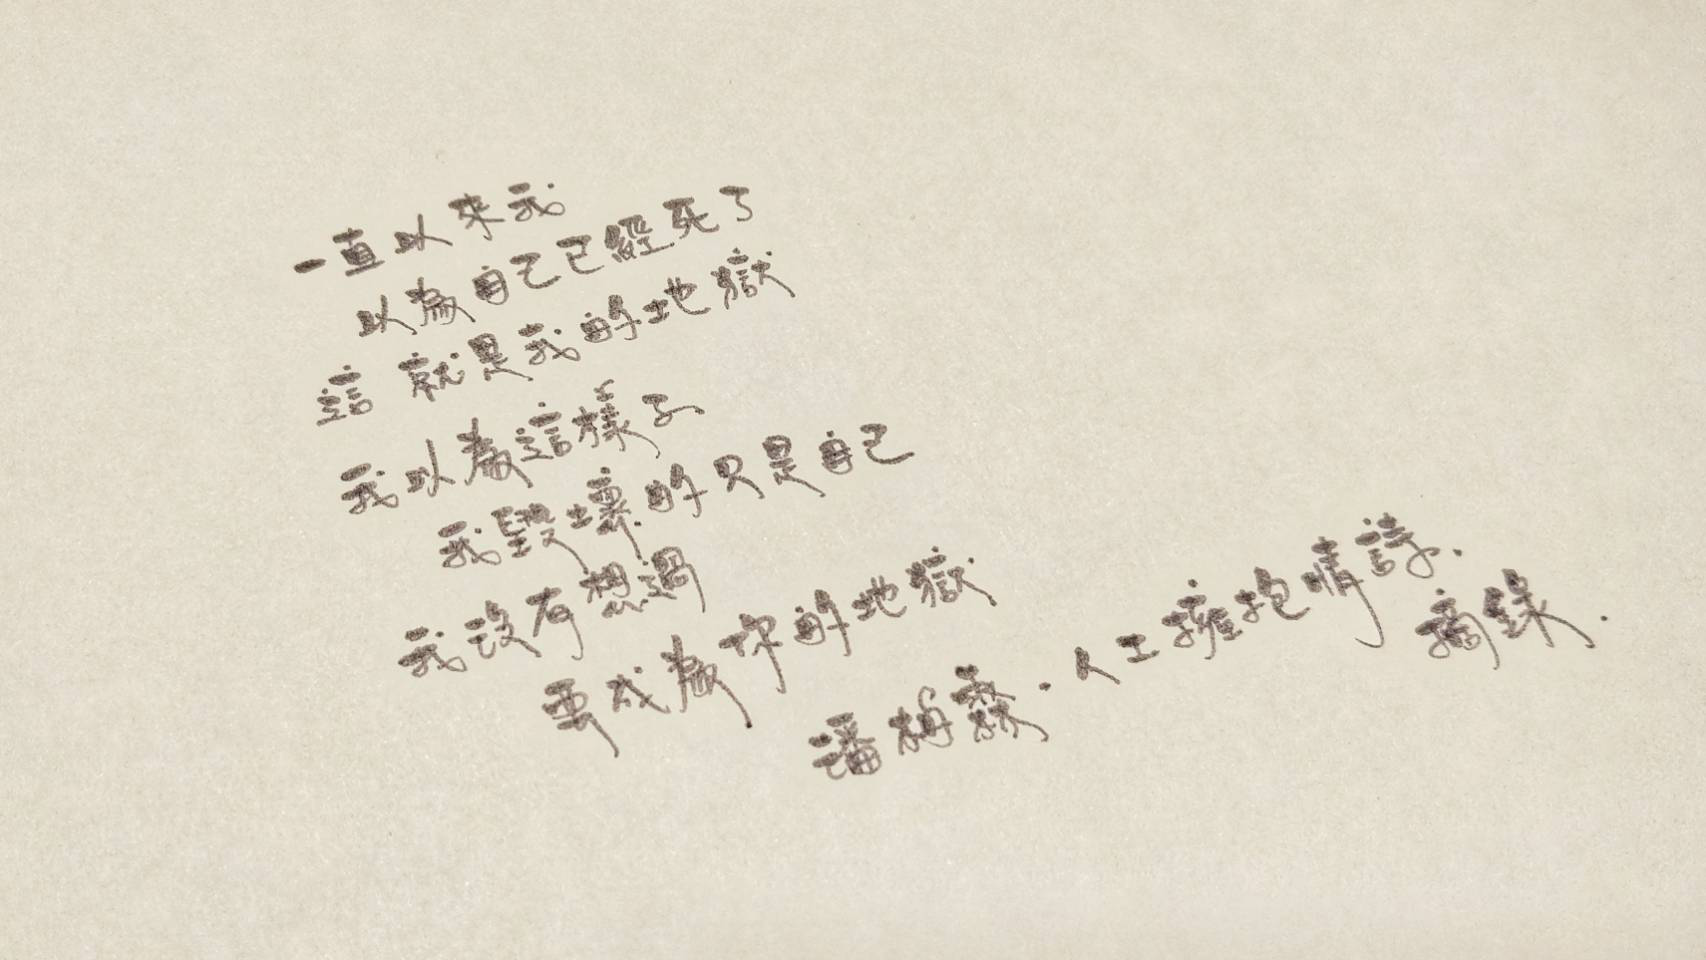 一直以來我
以為自己已經死了
這就是我的地獄
我以為這樣子
我毀壞的只是自己
我沒有想過
要成為你的地獄
潘柏霖．人工擁抱情詩．
摘錄．